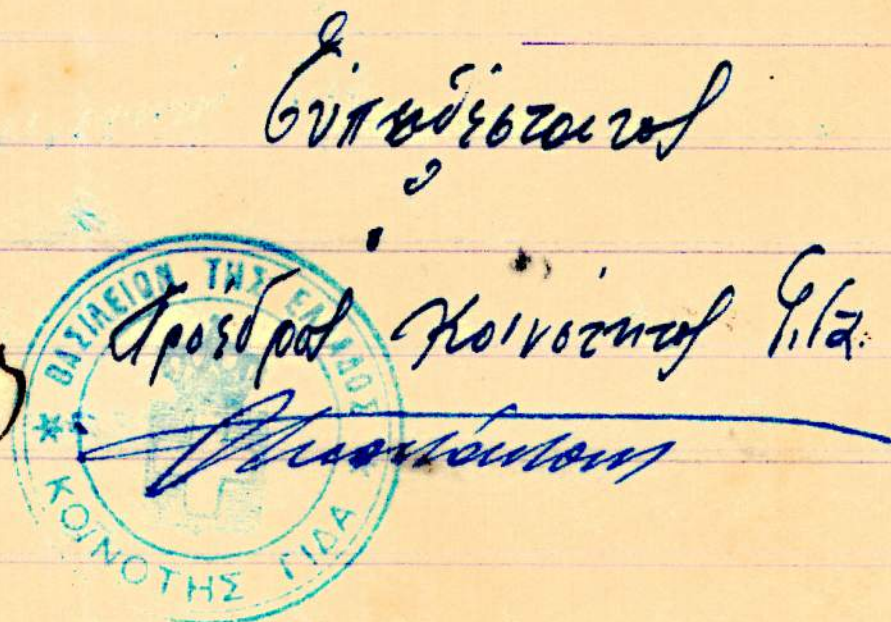 Εὐπειθέστατος
Ὁ
Πρόεδρος Κοινότητος Γιδᾶ
ΒΑΣΙΛΕΙΟΝ ΤΗΣ ΕΛΛΑΔΟΣ
ΚΟΙΝΟΤΗΣ ΓΙΔΑ